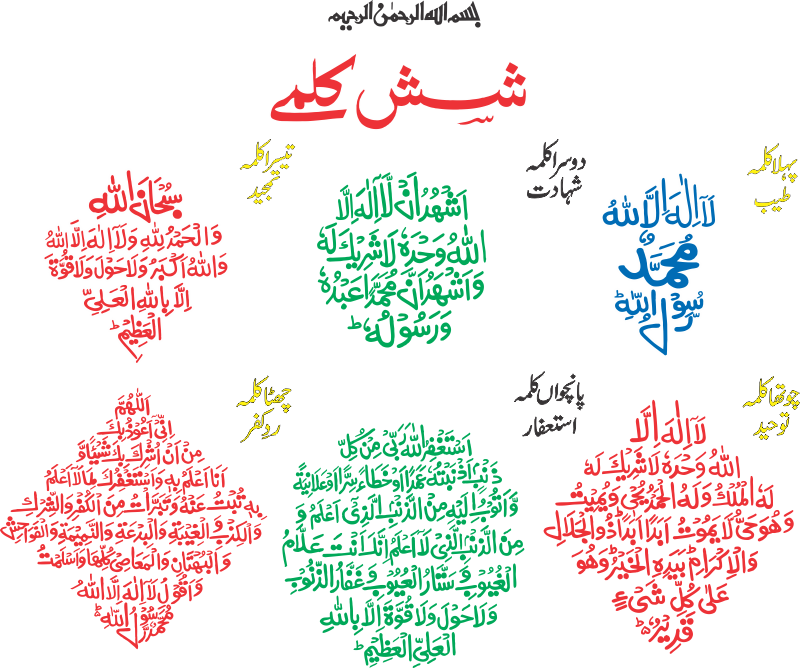 بسم الله الرحمن الرحيم
شِش کلمے
پہلا کلمہ
طیب
لَآ اِلٰهَ اِلَّا اللهُ
مُحَمَّدٌ
رَّسُوْلُ اللهِ ؕ
دوسرا کلمہ
شہادت
اَشْهَدُ اَنْ لَّآ اِلٰهَ اِلَّا
اللهُ وَحْدَهٗ لَا شَرِيْكَ لَهٗ
وَاَشْهَدُ اَنَّ مُحَمَّدًا عَبْدُهٗ
وَرَسُوْلُهٗ ؕ
تیسرا کلمہ
تمجید
سُبْحَانَ اللهِ
وَالْحَمْدُ لِلّٰهِ وَلَآ اِلٰهَ اِلَّا اللهُ
وَاللهُ اَكْبَرُ وَلَا حَوْلَ وَلَا قُوَّةَ
اِلَّا بِاللهِ الْعَلِيِّ
الْعَظِيْمِ ؕ
چوتھا کلمہ
توحید
لَآ اِلٰهَ اِلَّا
اللهُ وَحْدَهٗ لَا شَرِيْكَ لَهٗ
لَهُ الْمُلْكُ وَلَهُ الْحَمْدُ يُحْيٖ وَيُمِيْتُ
وَهُوَ حَيٌّ لَّا يَمُوْتُ اَبَدًا اَبَدًا ذُو الْجَلَالِ
وَالْاِكْرَامِ بِيَدِهِ الْخَيْرُ وَهُوَ
عَلٰى كُلِّ شَیْءٍ
قَدِيْرٌ ؕ
پانچواں کلمہ
استغفار
اَسْتَغْفِرُ اللهَ رَبِّيْ مِنْ كُلِّ
ذَنْۢبٍ اَذْنَبْتُهٗ عَمَدًا اَوْ خَطَاءً سِرًّا اَوْ عَلَانِيَةً
وَّاَتُوْبُ اِلَيْهِ مِنَ الذَّنْۢبِ الَّذِيْٓ اَعْلَمُ وَ
مِنَ الذَّنْۢبِ الَّذِيْ لَآ اَعْلَمُ اِنَّكَ اَنْتَ عَلَّامُ
الْغُيُوْبِ وَ سَتَّارُ الْعُيُوْبِ وَ غَفَّارُ الذُّنُوْبِ
وَلَا حَوْلَ وَلَا قُوَّةَ اِلَّا بِاللهِ
الْعَلِيِّ الْعَظِيْمِ ؕ
چھٹا کلمہ
ردِ کفر
اَللّٰهُمَّ
اِنِّيْٓ اَعُوْذُ بِكَ
مِنْ اَنْ اُشْرِكَ بِكَ شَيْئًا وَّ
اَنَا اَعْلَمُ بِهٖ وَاَسْتَغْفِرُكَ لِمَا لَآ اَعْلَمُ
بِهٖ تُبْتُ عَنْهُ وَتَبَرَّاْتُ مِنَ الْكُفْرِ وَالشِّرْكِ
وَالْكِذْبِ وَ الْغِيْبَةِ وَالْبِدْعَةِ وَالنَّمِيْمَةِ وَالْفَوَاحِشِ
وَالْبُهْتَانِ وَالْمَعَاصِيْ كُلِّهَا وَاَسْلَمْتُ
وَاَقُوْلُ لَآ اِلٰهَ اِلَّا اللهُ
مُحَمَّدٌ رَّسُوْلُ اللهِ ؕ